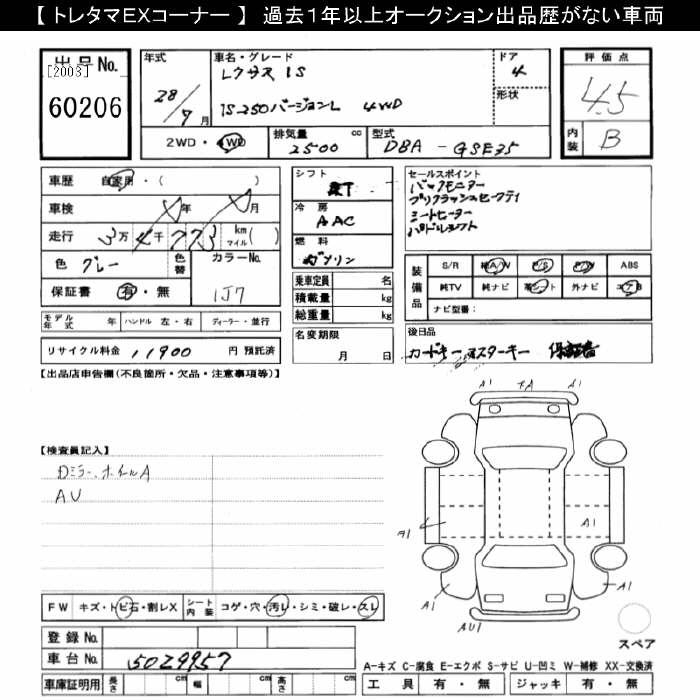 【 トレタマEXコーナー 】 過去1年以上オークション出品歴がない車両
出品No.
[2003]
60206
年式
28/7月
車名・グレード
レクサス IS
IS250バージョンL 4WD
ドア
4
形状
2WD・4WD
排気量 cc
2500
型式
DBA - GSE35
評価点
4.5
内装
B
車歴 自家用・( )
車検 年 月
走行 3万 4千 773 km マイル( )
色 グレー
色替
カラーNo.
1J7
保証書 有・無
モデル年式 年
ハンドル 左・右
ディーラー・並行
リサイクル料金 11900 円 預託済
シフト
冷房
AAC
燃料
ガソリン
乗車定員 名
積載量 kg
総重量 kg
名変期限
月 日
セールスポイント
バックモニター
プリクラッシュセーフティ
シートヒーター
パドルシフト
装備品
S/R 純A/W P/S P/W ABS
純TV 純ナビ 革シート 外ナビ エアB
ナビ型番:
後日品
カードキー マスターキー 保証書
【出品店申告欄(不良箇所・欠品・注意事項等)】
【検査員記入】
Dミラー、ホイルA
AU
A1
A1
A1
A1
A1
A1
AU1
FW キズ・トビ石・割レX
シート内装 コゲ・穴・汚レ・シミ・破レ・スレ
スペア
登録No.
車台No. 5029957
車庫証明用 長さ cm 幅 cm 高さ cm
A-キズ C-腐食 E-エクボ S-サビ U-凹ミ W-補修 XX-交換済
工具 有・無 ジャッキ 有・無